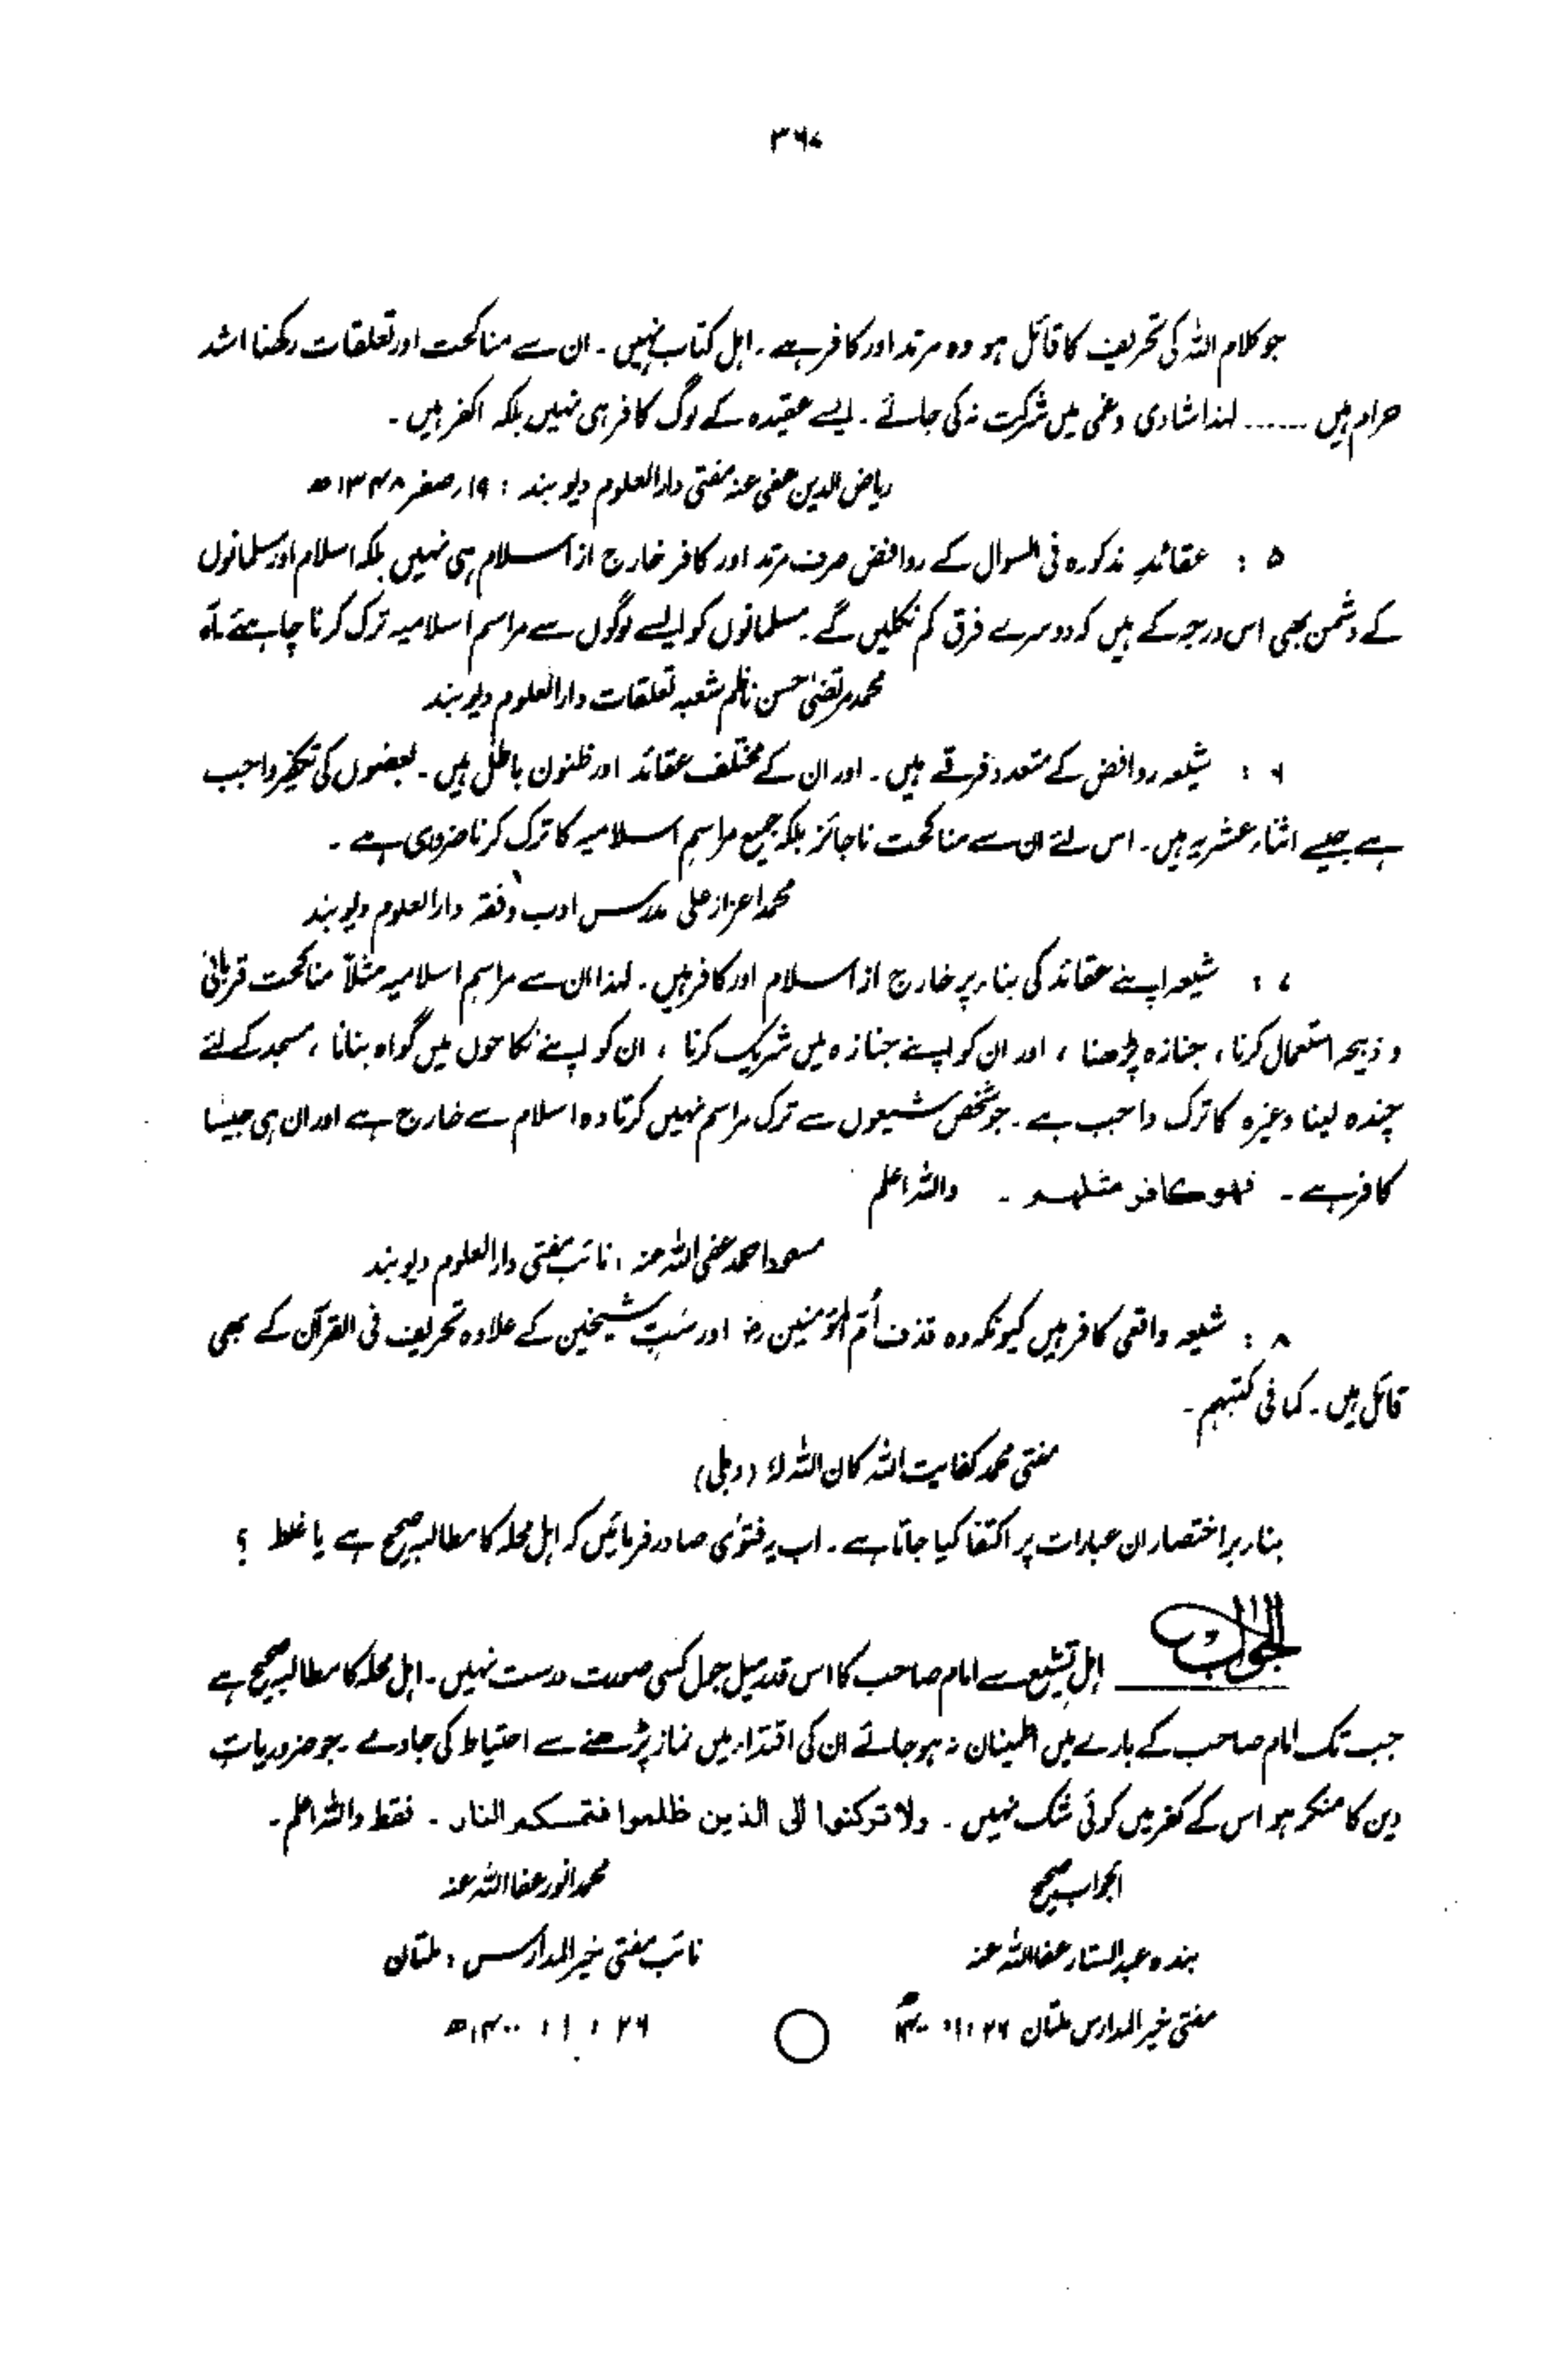 ۳۶۷
جو کلام اللہ کی تحریف کا قائل ہو وہ مرتد اور کافر ہے۔ اہل کتاب نہیں۔ ان سے مناکحت اور تعلقات رکھنا اشد
حرام ہیں ...... لہذا شادی و غمی میں شرکت نہ کی جائے۔ ایسے عقیدہ کے لوگ کافر ہی نہیں بلکہ اکفر ہیں۔
ریاض الدین عفی عنہ مفتی دارالعلوم دیوبند : ۱۹ر صفر ۱۳۴۸ھ
۵ : عقائدِ مذکورہ فی السوال کے روافض صرف مرتد اور کافر خارج از اسلام ہی نہیں بلکہ اسلام اور مسلمانوں
کے دشمن بھی اس درجہ کے ہیں کہ دوسرے فرق کم نکلیں گے۔ مسلمانوں کو ایسے لوگوں سے مراسم اسلامیہ ترک کرنا چاہئے۔
محمد مرتضیٰ حسن ناظم شعبہ تعلقات دارالعلوم دیوبند
۶ : شیعہ روافض کے متعدد فرقے ہیں۔ اور ان کے مختلف عقائد اور ظنون باطل ہیں۔ بعضوں کی تکفیر واجب
ہے جیسے اثناء عشریہ ہیں۔ اس لئے ان سے مناکحت ناجائز بلکہ جمیع مراسمِ اسلامیہ کا ترک کرنا ضروری ہے۔
محمد اعزاز علی مدرس ادب و فقہ دارالعلوم دیوبند
۷ : شیعہ اپنے عقائد کی بناء پر خارج از اسلام اور کافر ہیں۔ لہذا ان سے مراسمِ اسلامیہ مثلاً مناکحت قربانی
و ذبیحہ استعمال کرنا، جنازہ پڑھنا، اور ان کو اپنے جنازہ میں شریک کرنا، ان کو اپنے نکاحوں میں گواہ بنانا، مسجد کے لئے
چندہ لینا وغیرہ کا ترک واجب ہے۔ جو شخص شیعوں سے ترک مراسم نہیں کرتا وہ اسلام سے خارج ہے اور ان ہی جیسا
کافر ہے۔ فہو کافر مثلہم۔ واللہ اعلم
مسعود احمد عفی اللہ عنہ، نائب مفتی دارالعلوم دیوبند
۸ : شیعہ واقعی کافر ہیں کیونکہ وہ قذف اُم المؤمنین رض اور سَبِّ شیخین کے علاوہ تحریف فی القرآن کے بھی
قائل ہیں۔ کما فی کتبہم۔
مفتی محمد کفایت اللہ کان اللہ لہٗ (دہلی)
بناء بر اختصار ان عبارات پر اکتفا کیا جاتا ہے۔ اب یہ فتویٰ صادر فرمائیں کہ اہل محلہ کا مطالبہ صحیح ہے یا غلط ؟
الجواب اہل تشیع سے امام صاحب کا اس قدر میل جمل کسی صورت درست نہیں۔ اہل محلہ کا مطالبہ صحیح ہے
جب تک امام صاحب کے بارے میں اطمینان نہ ہو جائے ان کی اقتداء میں نماز پڑھنے سے احتیاط کی جاوے۔ جو ضروریاتِ
دین کا منکر ہو اس کے کفر میں کوئی شک نہیں۔ ولا ترکنوا الی الذین ظلموا فتمسکم النار۔ فقط واللہ اعلم۔
الجواب صحیح
محمد انور عفا اللہ عنہ
بندہ عبدالستار عفا اللہ عنہ
نائب مفتی خیر المدارس، ملتان
مفتی خیر المدارس ملتان ۲۶ ؍ ۱ ؍ ۱۴۰۰ھ
۲۶ ؍ ۱ ؍ ۱۴۰۰ھ